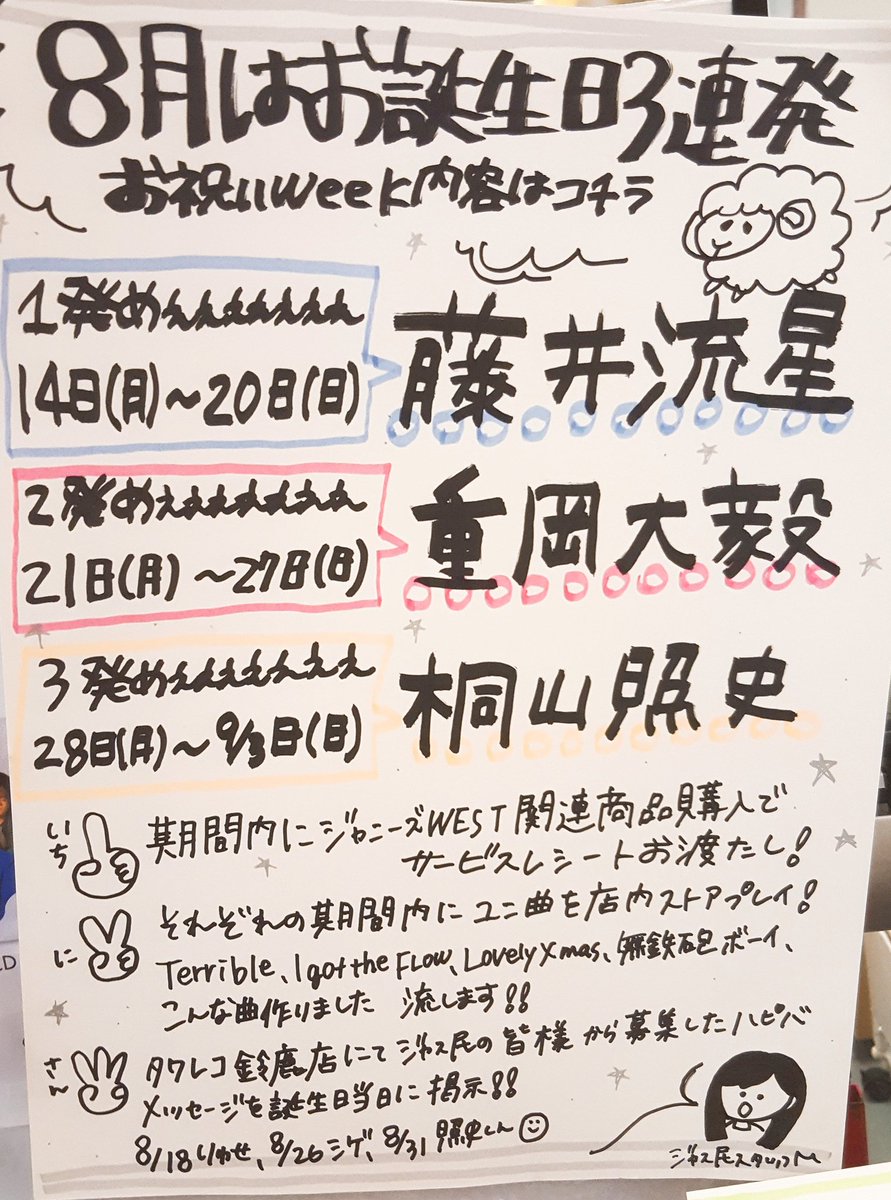 8月はお誕生日3連発
お祝いweek内容はコチラ
1発めぇぇぇぇぇぇぇ
14日(月)〜20日(日)
藤井流星
2発めぇぇぇぇぇぇぇ
21日(月)〜27日(日)
重岡大毅
3発めぇぇぇぇぇぇぇ
28日(月)〜9/3日(日)
桐山照史
いち
期間内にジャニーズWEST関連商品購入で
サービスレシートお渡たし!
に
それぞれの期間内にユニ曲を店内ストアプレイ!
Terrible、I got the FLOW、Lovely Xmas、無鉄砲ボーイ、
こんな曲作りました 流します!!
さん
タワレコ鈴鹿店にてジャス民の皆様から募集したハピバ
メッセージを誕生日当日に掲示!!
8/18りゅせ、8/26シゲ、8/31照史くん
ジャス民スタッフM